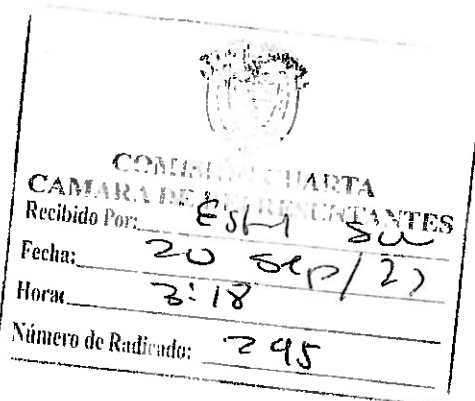 COMISIÓN CUARTA
CAMARA DE REPRESENTANTES
Recibido Por:
Fecha: 20 sep/
Hora: 3:18
Número de Radicado: 295